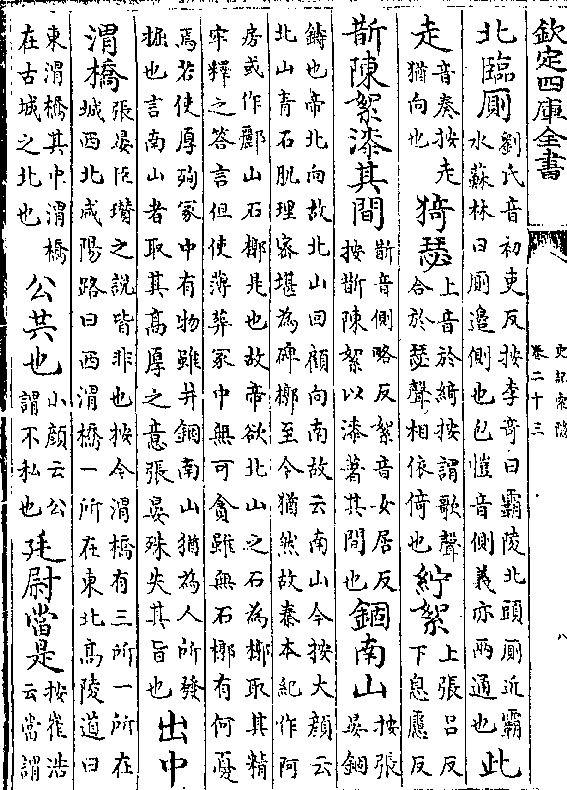 欽定四庫全書
史記索隱
卷二十三
八
北臨厠
劉氏音初吏反按李奇曰霸陵北頭厠近霸
水蘇林曰厠邉側也包愷音側義亦兩通也
此
走
音奏按走
猶向也
猗瑟
上音於綺按謂歌聲
合於瑟聲相依倚也
紵絮
上張吕反
下息慮反
斮陳絮漆其間
斮音側略反絮音女居反
按斮陳絮以漆著其間也
錮南山
按張
晏錮
鑄也帝北向故北山回顧向南故云南山今按大顔云
北山青石肌理宻堪為碑槨至今猶然故秦本紀作阿
房或作酈山石槨是也故帝欲北山之石為槨取其精
牢釋之答言但使薄葬冡中無可貪雖無石槨有何憂
焉若使厚殉冡中有物雖并錮南山猶為人所發
掘也言南山者取其髙厚之意張晏殊失其旨也
出中
渭橋
張晏臣瓚之說皆非也按今渭橋有三所一所在
城西北咸陽路曰西渭橋一所在東北髙陵道曰
東渭橋其中渭橋
在古城之北也
公共也
小顔云公
謂不私也
廷尉當是
按崔浩
云當謂